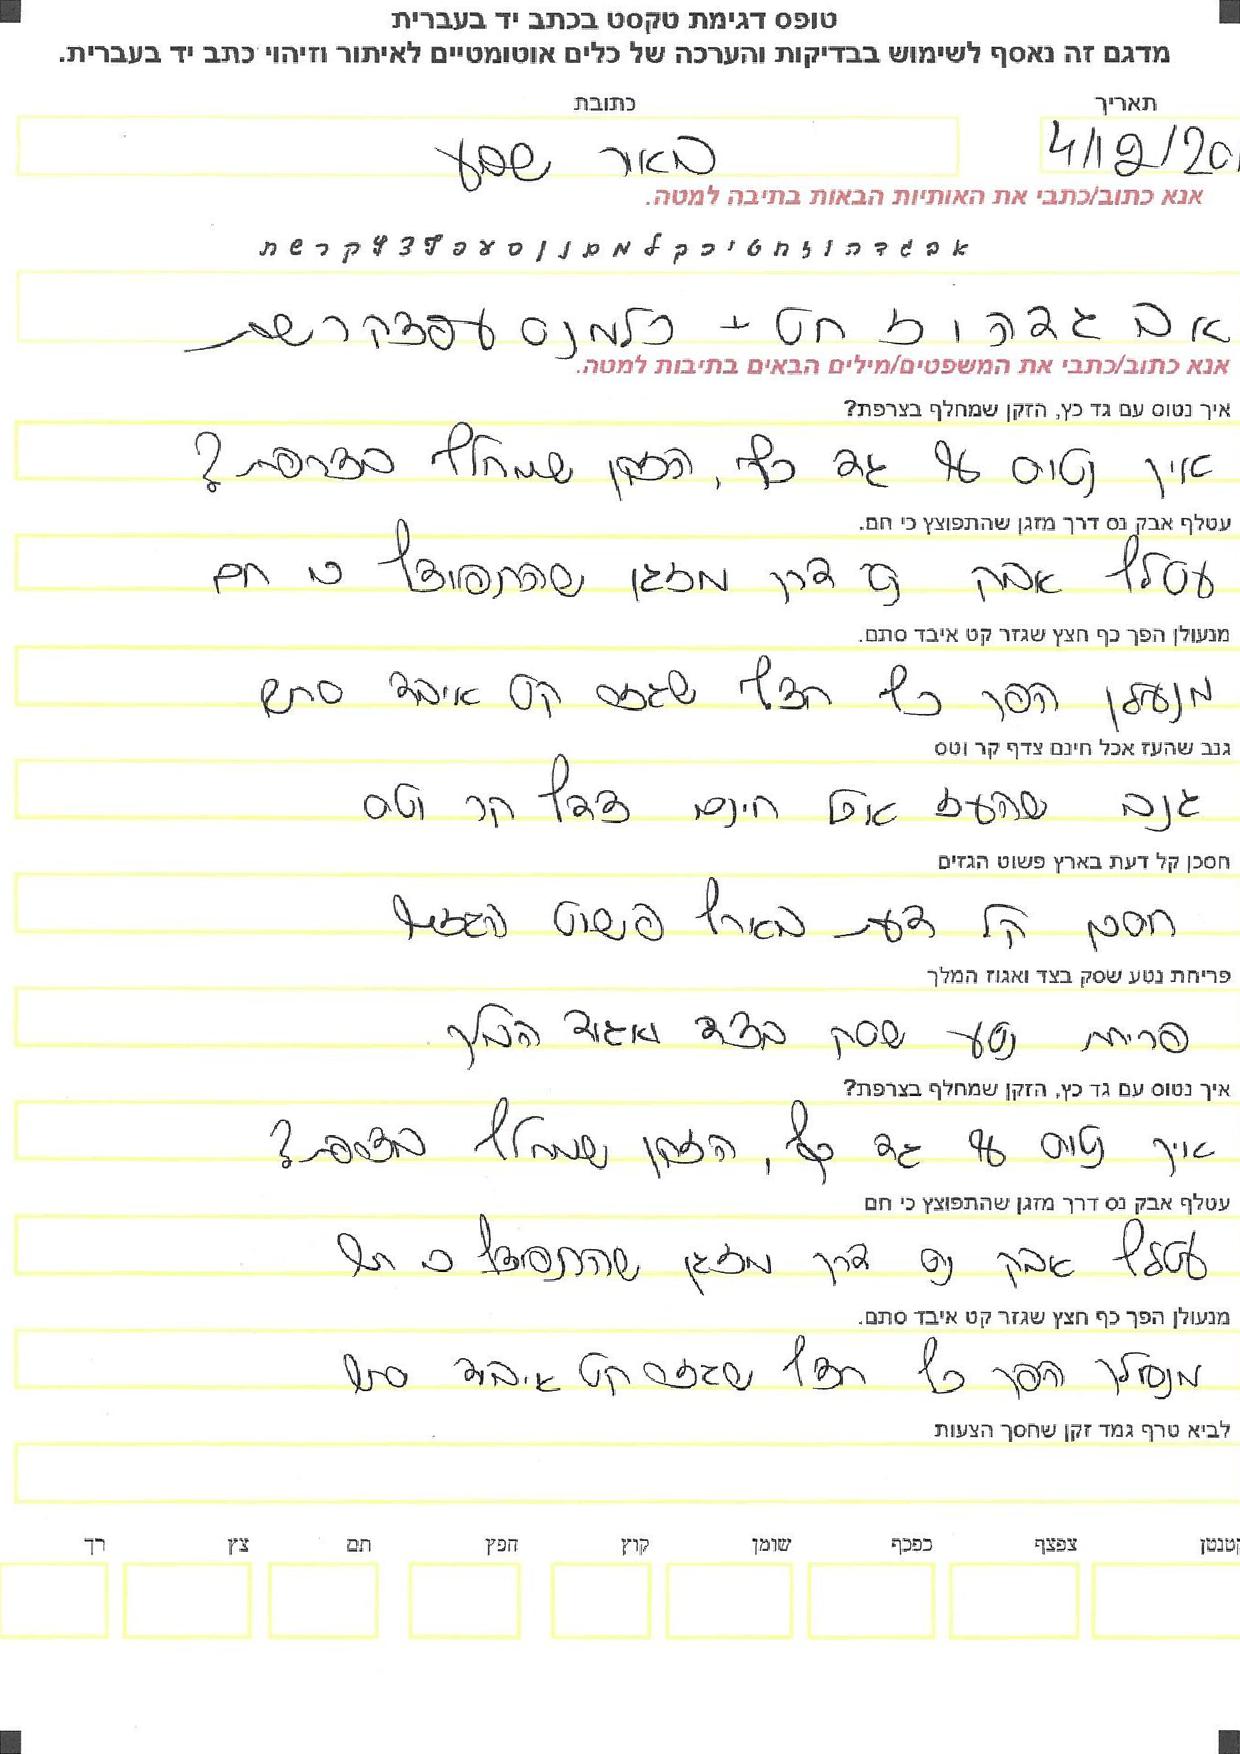 טופס דגימת טקסט בכתב יד בעברית
מדגם זה נאסף לשימוש בבדיקות והערכה של כלים אוטומטיים לאיתור וזיהוי כתב יד בעברית.
תאריך כתובת
4/12/20 באר שבע
אנא כתוב/כתבי את האותיות הבאות בתיבה למטה.
א ב ג ד ה ו ז ח ט י כ ך ל מ ם נ ן ס ע פ ף צ ץ ק ר ש ת
א ב ג ד ה ו ז ח ט י כ ל מ נ ס ע פ צ ק ר ש ת
אנא כתוב/כתבי את המשפטים/מילים הבאים בתיבות למטה.
איך נטוס עם גד כץ, הזקן שמחלף בצרפת?
איך נטוס עם גד כץ, הזקן שמחלף בצרפת?
עטלף אבק נס דרך מזגן שהתפוצץ כי חם.
עטלף אבק נס דרך מזגן שהתפוצץ כי חם
מנעולן הפך כף חצץ שגזר קט איבד סתם.
מנעולן הפך כף חצץ שגזר קט איבד סתם
גנב שהעז אכל חינם צדף קר וטס
גנב שהעז אכל חינם צדף קר וטס
חסכן קל דעת בארץ פשוט הגזים
חסכן קל דעת בארץ פשוט הגזים
פריחת נטע שסק בצד ואגוז המלך
פריחת נטע שסק בצד ואגוז המלך
איך נטוס עם גד כץ, הזקן שמחלף בצרפת?
איך נטוס עם גד כץ, הזקן שמחלף בצרפת?
עטלף אבק נס דרך מזגן שהתפוצץ כי חם
עטלף אבק נס דרך מזגן שהתפוצץ כי חם
מנעולן הפך כף חצץ שגזר קט איבד סתם.
הפך כף חצץ שגזר קט איבד סתם
לביא טרף גמד זקן שחסך הצעות
קטנטן צפצף כפכף שומן קוץ חפץ תם צץ רך